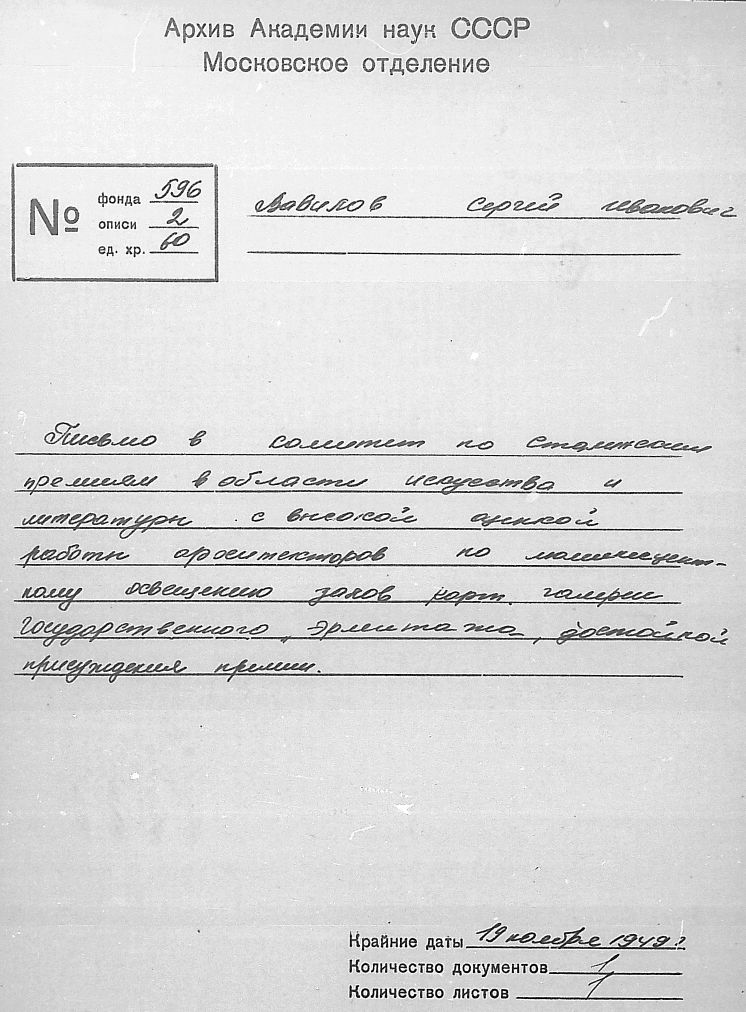 Архив Академии наук СССР
Московское отделение
№
фонда 596
описи 2
ед. хр. 60
Вавилов Сергей Иванович
Письмо в комитет по Сталинским
премиям в области искусства и
литературы с высокой оценкой
работы архитекторов по люминисцент-
ному освещению залов карт. галереи
Государственного „Эрмитажа", достойной
присуждения премии.
Крайние даты 19 ноября 1949 г.
Количество документов 1
Количество листов 1